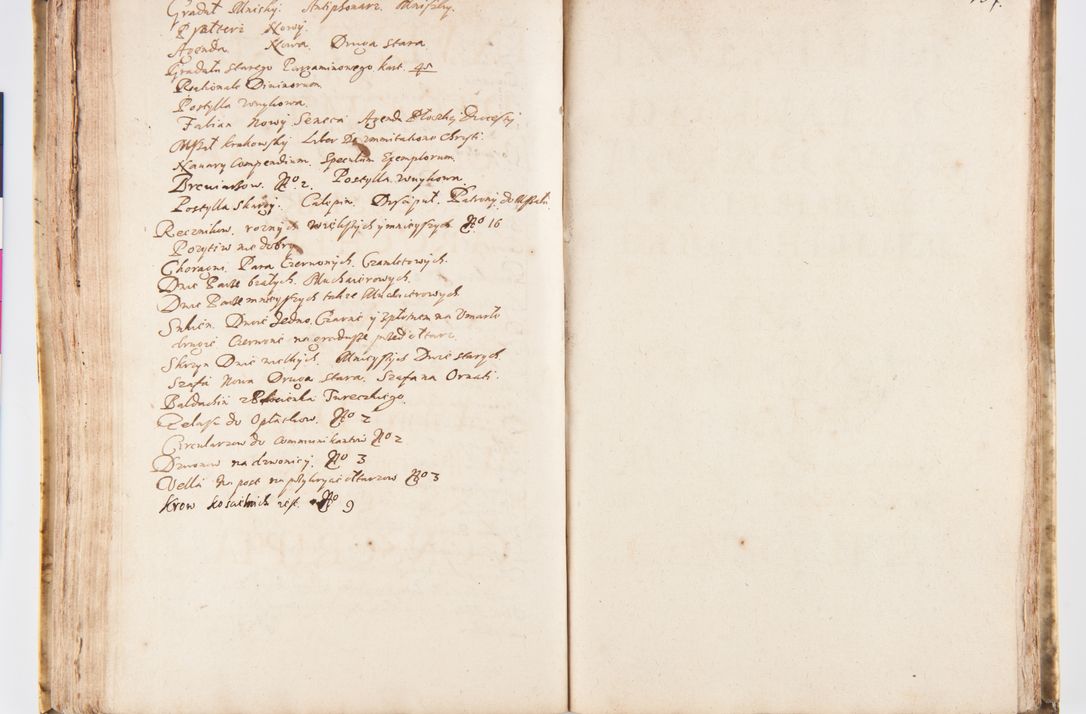 Graduał Mnieiszy. Antiphonarz. Mnieiszy.
Psałterz Nowy.
Agenda Nowa. Druga stara
Graduału starego Pargaminowego kart. 45
Rationale Divinorum
Postylla Wuykowa.
Fabian Nowy Seneca Agenda Płockiey Diocesiey
Mszał krakowsky Liber De immitatione Christi
Nauary Compendium. Speculum Exemplorum.
Breuiarzow. No 2. Postylla Wuykowa
Postylla Skargi. Calepin. Discipul. Patrony do Mszału.
Recznikow. roznych większych y mnieyszych No 16
Pozytiw nie dobry
Choragwi Para Czerwonych. Czamletowych.
Dwie Parze białych. Muchaierowych.
Dwie Parze mnieyszych także Muchaierowych
Sukien. Dwie Jedno Czarne y zpłotnem na Umarłe
drugie Czerwone na gradusze przed ołtarz.
Skrzyn Dwie wielkych. Mnieyszych Dwie starych
Szafa Nowa Druga stara. Szafa na Ornati.
Baldachin z Tureczkiego.
Zelasz do Opłatkow. No 2
Circularzow do Communikantow No 2
Dzwonow na dzwonicy. No 3
Vella na post na przykrycie ołtarzow No 3
Krow kosćielnich iest. No 9